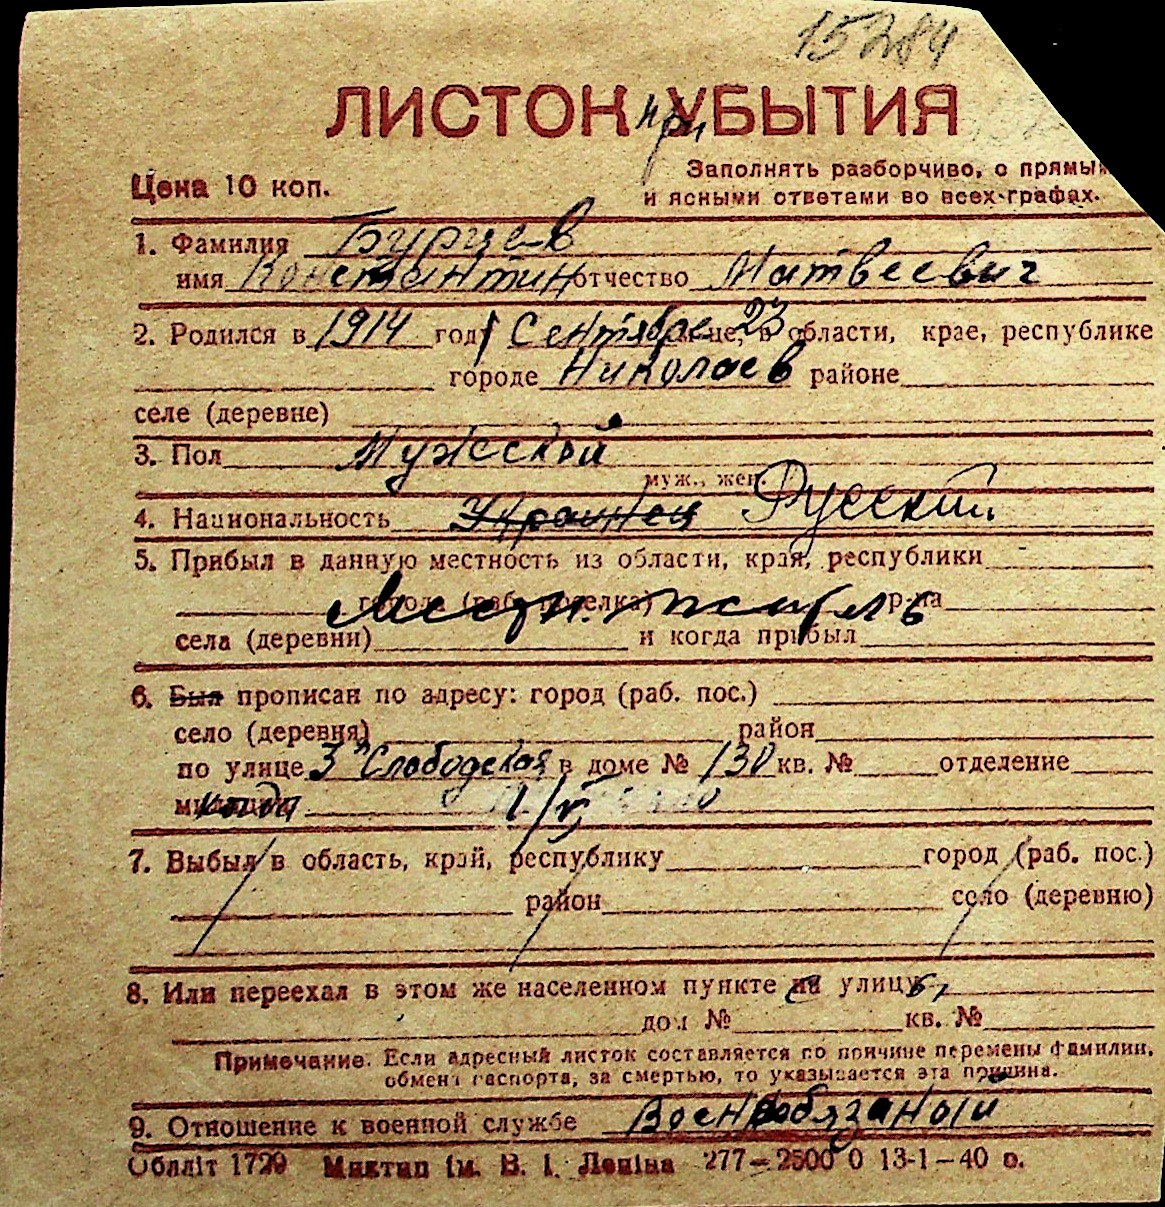 15284
ЛИСТОК при УБЫТИЯ
Цена 10 коп.
Заполнять разборчиво, с прямыми
и ясными ответами во всех графах.
1. Фамилия Бурцев
имя Константин отчество Матвеевич
2. Родился в 1914 году Сентябре 23, в области, крае, республике
городе Николаев районе
селе (деревне)
3. Пол Мужской
муж., жен.
4. Национальность Украинец Русский
5. Прибыл в данную местность из области, края, республики
города (раб. поселка) р-на
Местн. житель
села (деревни) и когда прибыл
6. Был прописан по адресу: город (раб. пос.)
село (деревня) район
по улице 3я Слободская в доме № 130 кв. № отделение
милиции
7. Выбыл в область, край, республику город (раб. пос.)
район село (деревню)
8. Или переехал в этом же населенном пункте улицу
дом № кв. №
Примечание. Если адресный листок составляется по причине перемены фамилии,
обмена паспорта, за смертью, то указывается эта причина.
9. Отношение к военной службе Военнообязаный
Обллiт 1729 Миктип iм. В. I. Ленiна 277—2500 0 13-1—40 р.